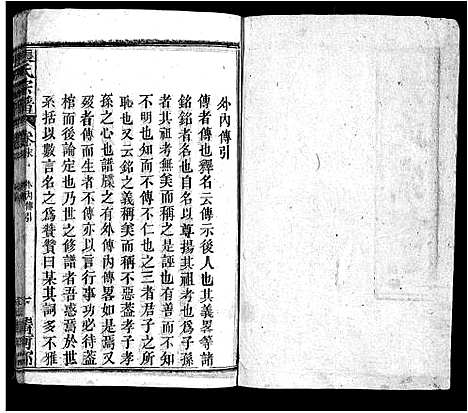 外內傳引
傳者傳也釋名云傳示後人也其義畧等諸
銘銘者名也自名以尊揚其祖考也爲子孫
者其祖考無美而稱之是誣也有善而不知
不明也知而不傳不仁也之三者君子之所
恥也又云銘之義稱美而不稱惡蓋孝子孝
孫之心也譜牒之有外傳內傳畧如是焉又
歿者傳而生者不傳亦以言行事功必待蓋
棺而後論定也乃世之修譜者吾惑焉於世
系括以數言名之爲贊贊曰某某其詞多不雅
氏宗譜
卷末
外內傳引